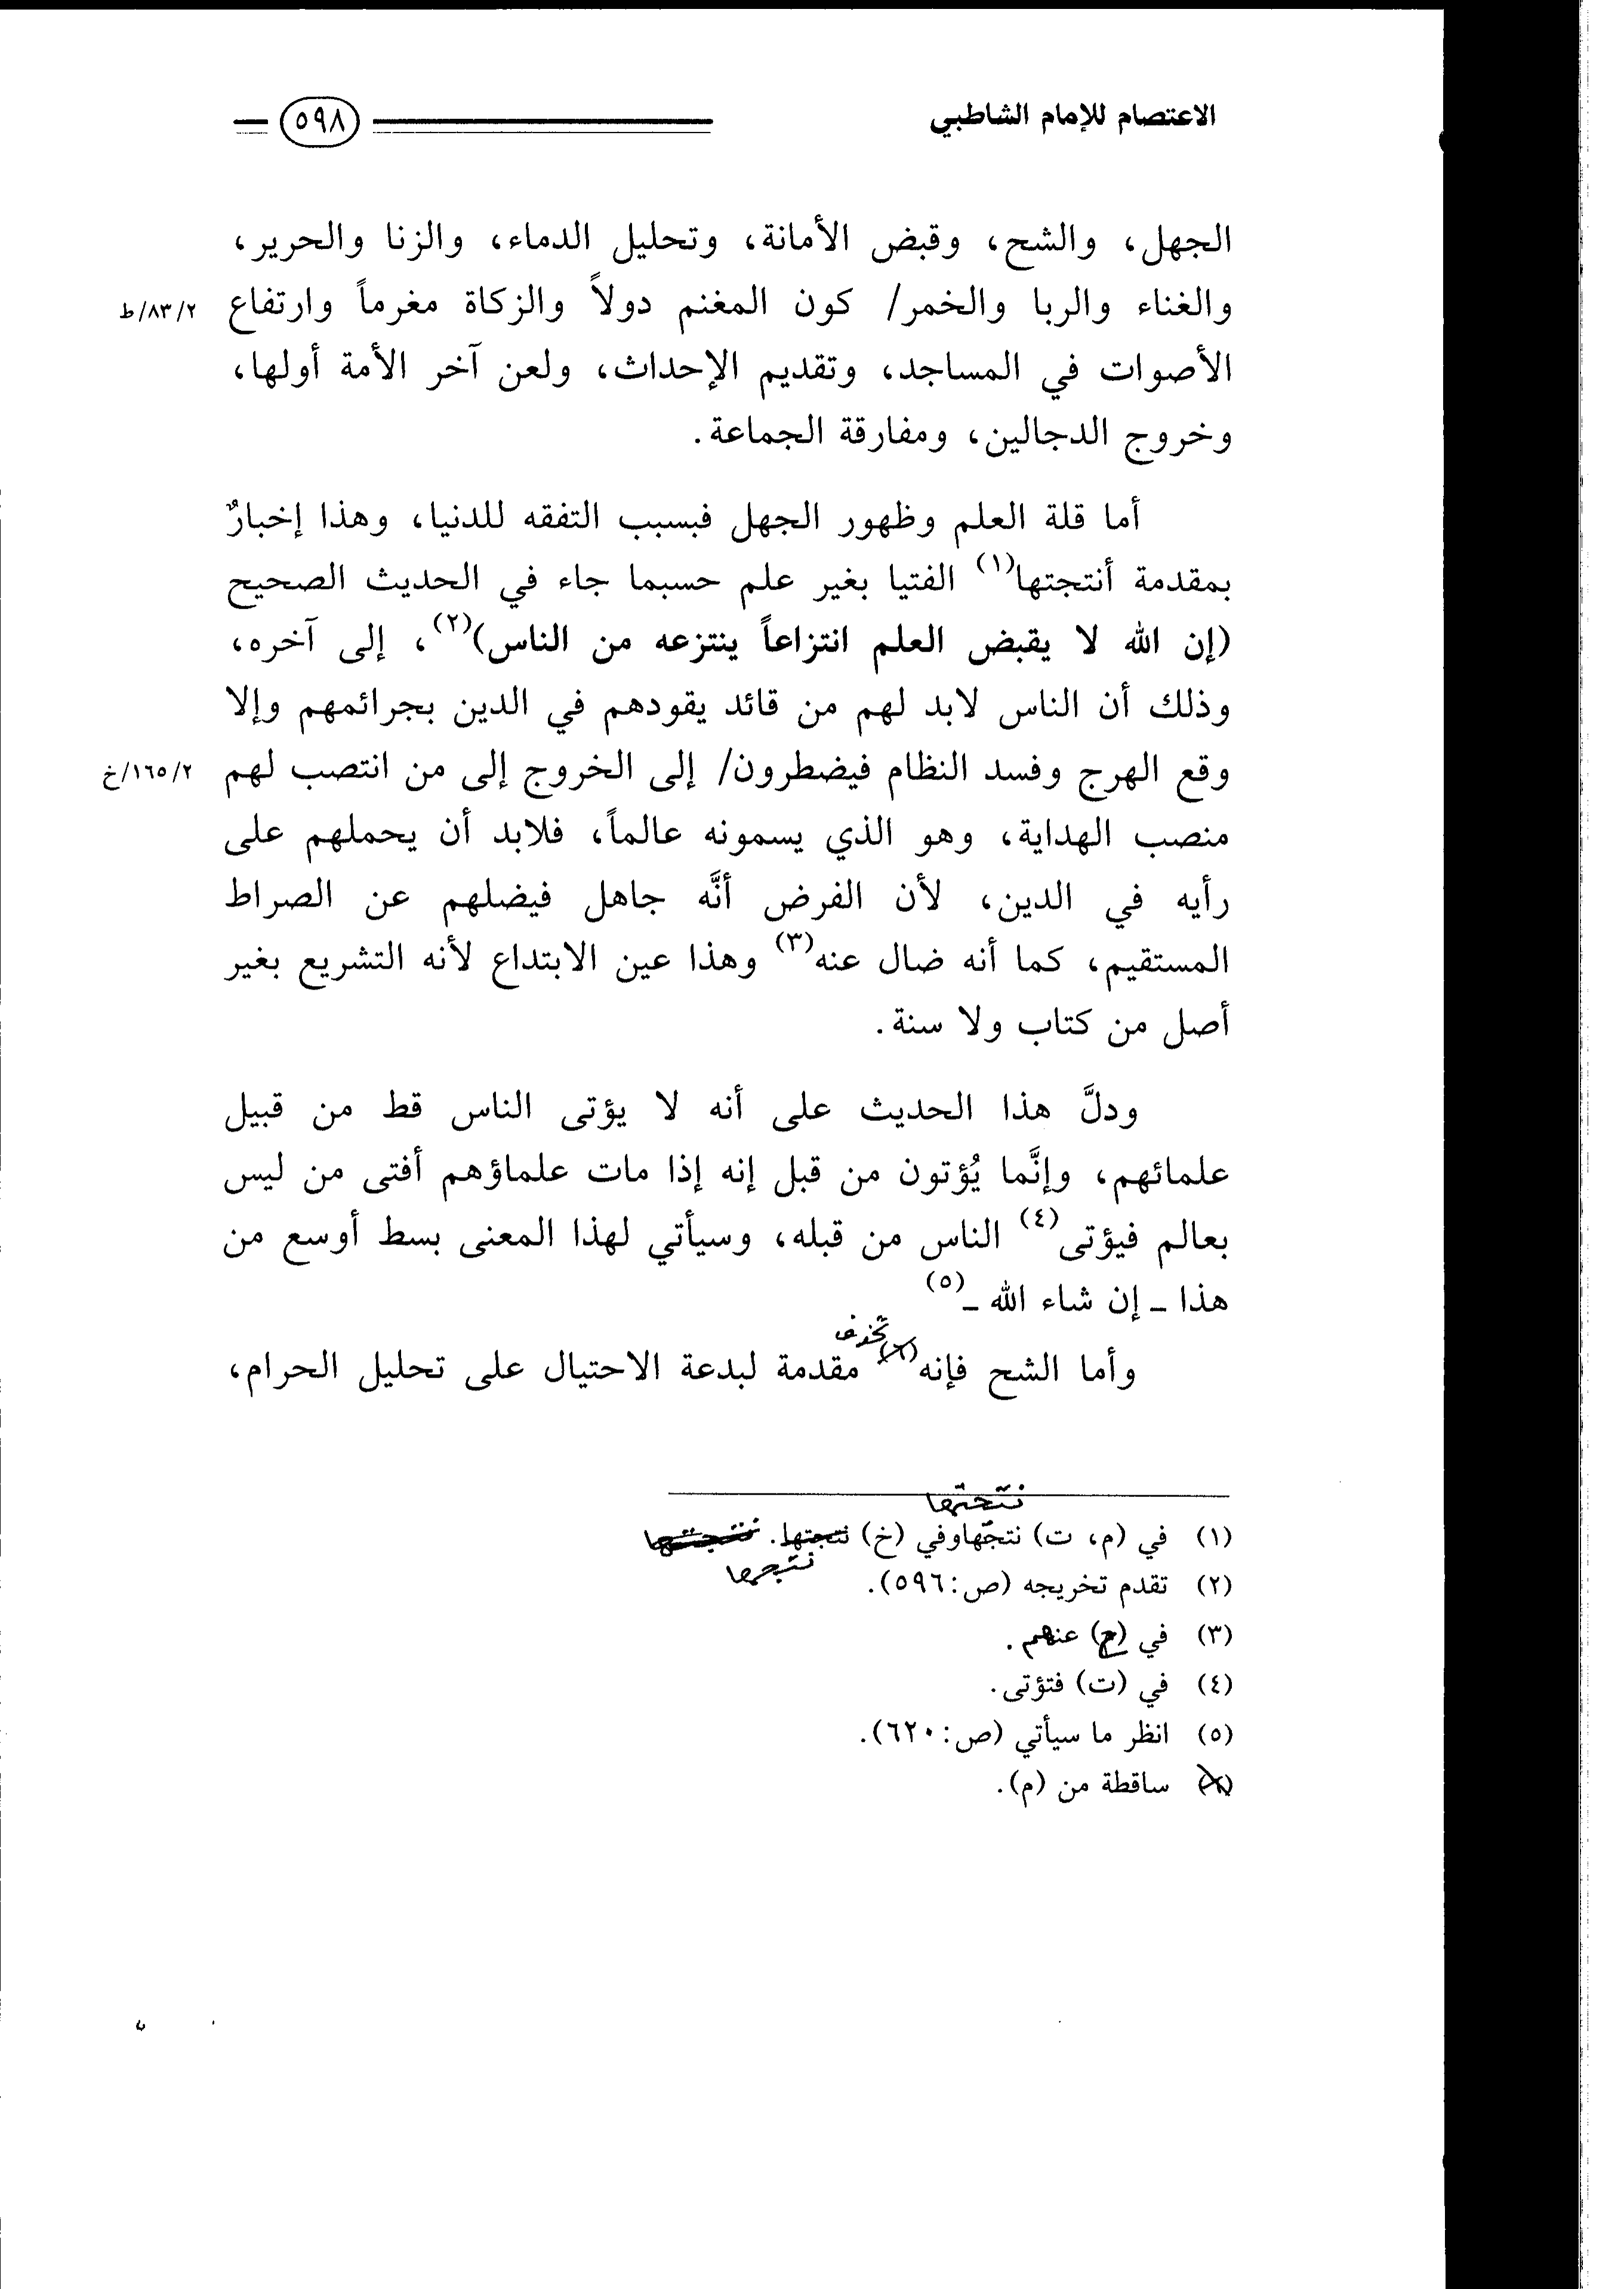 الاعتصام للإمام الشاطبي ٥٩٨
الجهل، والشح، وقبض الأمانة، وتحليل الدماء، والزنا والحرير،
والغناء والربا والخمر/ كون المغنم دولاً والزكاة مغرماً وارتفاع ٨٣/٢/ط
الأصوات في المساجد، وتقديم الإحداث، ولعن آخر الأمة أولها،
وخروج الدجالين، ومفارقة الجماعة.
أما قلة العلم وظهور الجهل فبسبب التفقه للدنيا، وهذا إخبارٌ
بمقدمة أنتجتها(١) الفتيا بغير علم حسبما جاء في الحديث الصحيح
(إن الله لا يقبض العلم انتزاعاً ينتزعه من الناس)(٢)، إلى آخره،
وذلك أن الناس لابد لهم من قائد يقودهم في الدين بجرائمهم وإلا
وقع الهرج وفسد النظام فيضطرون/ إلى الخروج إلى من انتصب لهم ١٦٥/٢/خ
منصب الهداية، وهو الذي يسمونه عالماً، فلابد أن يحملهم على
رأيه في الدين، لأن الفرض أنَّه جاهل فيضلهم عن الصراط
المستقيم، كما أنه ضال عنه(٣) وهذا عين الابتداع لأنه التشريع بغير
أصل من كتاب ولا سنة.
ودلَّ هذا الحديث على أنه لا يؤتى الناس قط من قبيل
علمائهم، وإنَّما يُؤتون من قبل إنه إذا مات علماؤهم أفتى من ليس
بعالم فيؤتى(٤) الناس من قبله، وسيأتي لهذا المعنى بسط أوسع من
هذا ـ إن شاء الله ـ(٥)
تحذف
وأما الشح فإنه(٦) مقدمة لبدعة الاحتيال على تحليل الحرام،
(١) في (م، ت) نتجّهاوفي (خ) نتجتها.
(٢) تقدم تخريجه (ص:٥٩٦).
(٣) في (م) عنهم.
(٤) في (ت) فتؤتى.
(٥) انظر ما سيأتي (ص:٦٢٠).
(٦) ساقطة من (م).